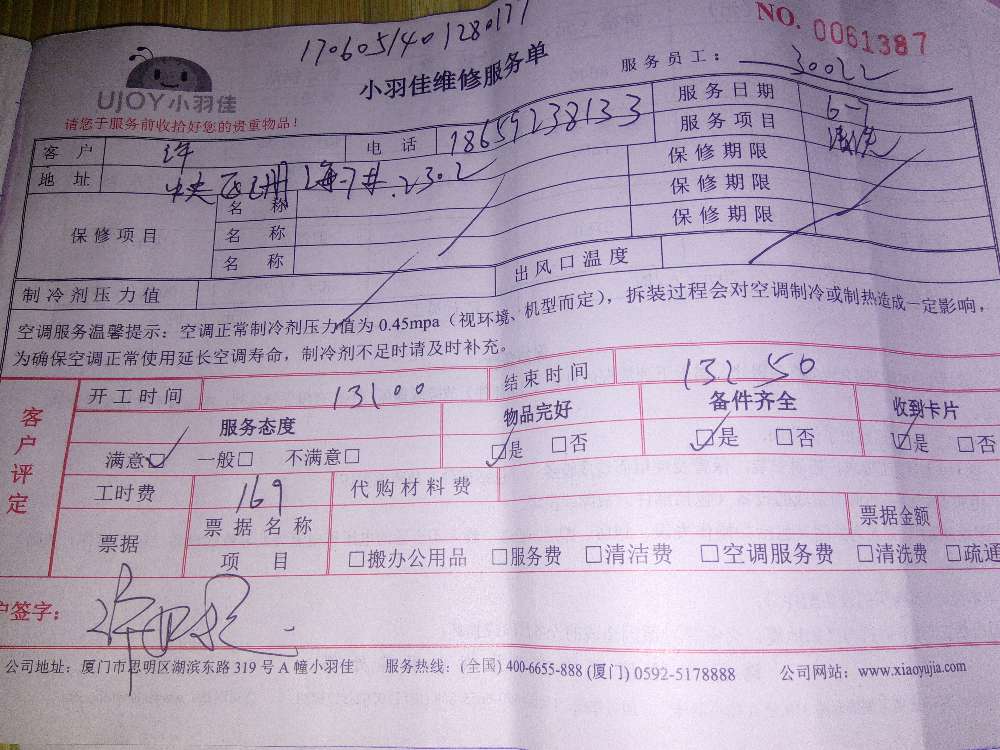 170605140128017
NO. 0061387
UJOY小羽佳
小羽佳维修服务单
服务员工： 30022
请您于服务前收拾好您的贵重物品！
客 户 许 电 话 18659238133 服务日期 6-7
地 址 中央 2302 服务项目
保修项目 名 称 保修期限
名 称 保修期限
名 称 保修期限
制冷剂压力值 出风口温度
空调服务温馨提示：空调正常制冷剂压力值为 0.45mpa（视环境、机型而定），拆装过程会对空调制冷或制热造成一定影响，
为确保空调正常使用延长空调寿命，制冷剂不足时请及时补充。
客户评定
开工时间 结束时间
服务态度 物品完好 备件齐全 收到卡片
满意□ 一般□ 不满意□ □是 □否 □是 □否 □是 □否
工时费 169 代购材料费
票据 票据名称 票据金额
项 目 □搬办公用品 □服务费 □清洁费 □空调服务费 □清洗费 □疏通
户签字：
公司地址：厦门市思明区湖滨东路 319 号 A 幢小羽佳 服务热线：(全国) 400-6655-888 (厦门) 0592-5178888 公司网站：www.xiaoyujia.com